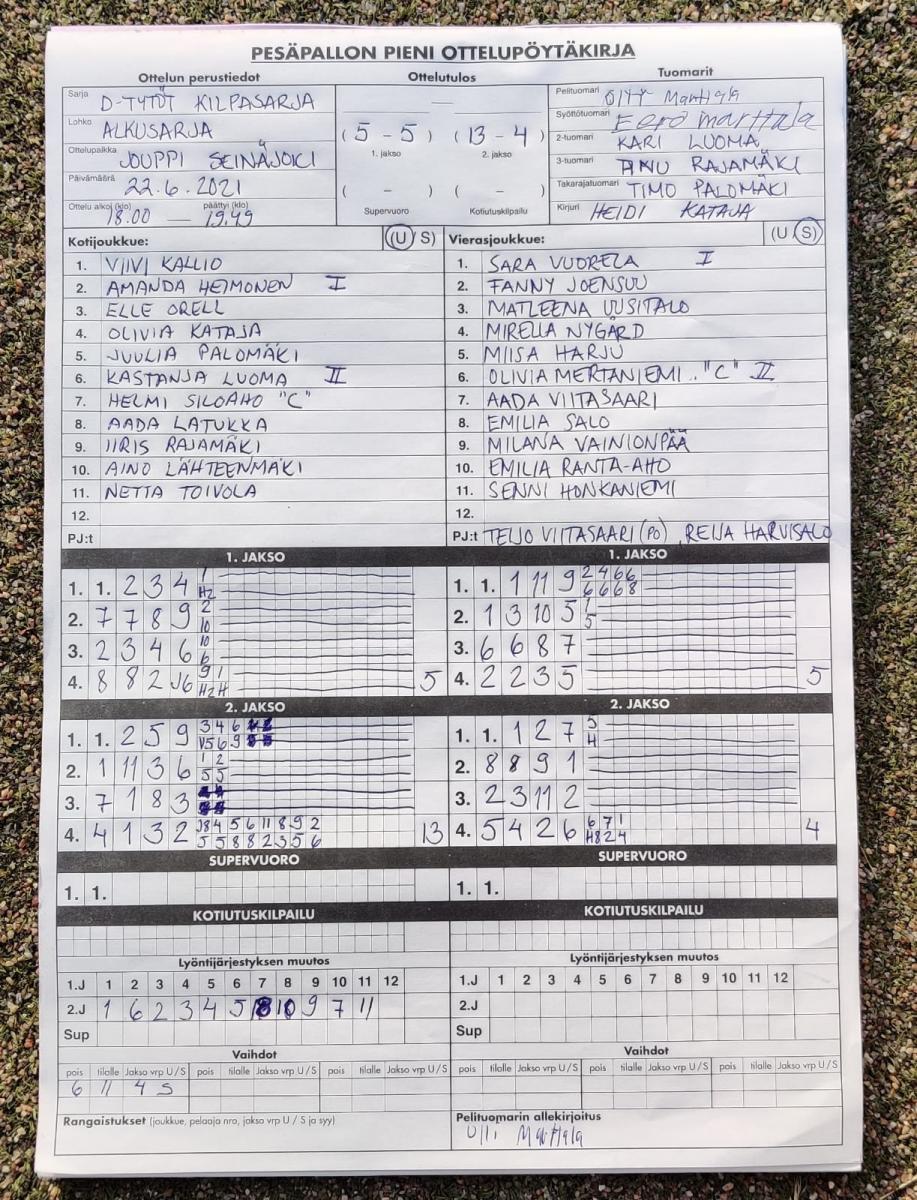 PESÄPALLON PIENI OTTELUPÖYTÄKIRJA
Ottelun perustiedot
Sarja D-TYTÖT KILPASARJA
Lohko ALKUSARJA
Ottelupaikka JOUPPI SEINÄJOKI
Päivämäärä 22.6.2021
Ottelu alkoi (klo) päättyi (klo)
18.00 — 19.49
Ottelutulos
(5 - 5) (13 - 4)
1. jakso 2. jakso
( - ) ( - )
Supervuoro Kotiutuskilpailu
Tuomarit
Pelituomari Olli Marttala
Syöttötuomari Eero Marttala
2-tuomari KARI LUOMA
3-tuomari RAJAMÄKI
Takarajatuomari TIMO PALOMÄKI
Kirjuri HEIDI KATAJA
Kotijoukkue: (U S)
1. VIIVI KALLIO
2. AMANDA HEIMONEN I
3. ELLE ORELL
4. OLIVIA KATAJA
5. JUULIA PALOMÄKI
6. KASTANJA LUOMA II
7. HELMI SILOAHO "C"
8. AADA LATUKKA
9. IIRIS RAJAMÄKI
10. AINO LÄHTEENMÄKI
11. NETTA TOIVOLA
12.
PJ:t
Vierasjoukkue: (U S)
1. SARA VUORELA I
2. FANNY JOENSUU
3. MATLEENA UUSITALO
4. MIRELLA NYGÅRD
5. MIISA HARJU
6. OLIVIA MERTANIEMI .. "C" II
7. AADA VIITASAARI
8. EMILIA SALO
9. MILANA VAINIONPÄÄ
10. EMILIA RANTA-AHO
11. SENNI HONKANIEMI
12.
PJ:t TEIJO VIITASAARI (PO), REIJA HARVISALO
1. JAKSO
1. 1. 2 3 4 1
H2
2. 7 7 8 9 2
10
3. 2 3 4 6 10
6
4. 8 8 2 J6 9 1 5
H2 H
2. JAKSO
1. 1. 2 5 9 3 4 6
V5 6 9
2. 1 11 3 6 1 2
5 5
3. 7 1 8 3
4. 4 1 3 2 J8 4 5 6 11 8 9 2 13
5 5 8 8 2 3 5 6
SUPERVUORO
1. 1.
KOTIUTUSKILPAILU
Lyöntijärjestyksen muutos
1.J 1 2 3 4 5 6 7 8 9 10 11 12
2.J 1 6 2 3 4 5 8 10 9 7 11
Sup
Vaihdot
pois tilalle Jakso vrp U/S pois tilalle Jakso vrp U/S pois tilalle Jakso vrp U/S
6 11 4 S
Rangaistukset (joukkue, pelaaja nro, jakso vrp U / S ja syy)
1. JAKSO
1. 1. 1 11 9 2 4 6 6
6 6 6 8
2. 1 3 10 5 1
5
3. 6 6 8 7
4. 2 2 3 5 5
2. JAKSO
1. 1. 1 2 7 5
H
2. 8 8 9 1
3. 2 3 11 2
4. 5 4 2 6 6 7 1 4
H8 2 4
SUPERVUORO
1. 1.
KOTIUTUSKILPAILU
Lyöntijärjestyksen muutos
1.J 1 2 3 4 5 6 7 8 9 10 11 12
2.J
Sup
Vaihdot
pois tilalle Jakso vrp U/S pois tilalle Jakso vrp U/S pois tilalle Jakso vrp U/S
Pelituomarin allekirjoitus
Olli Marttala